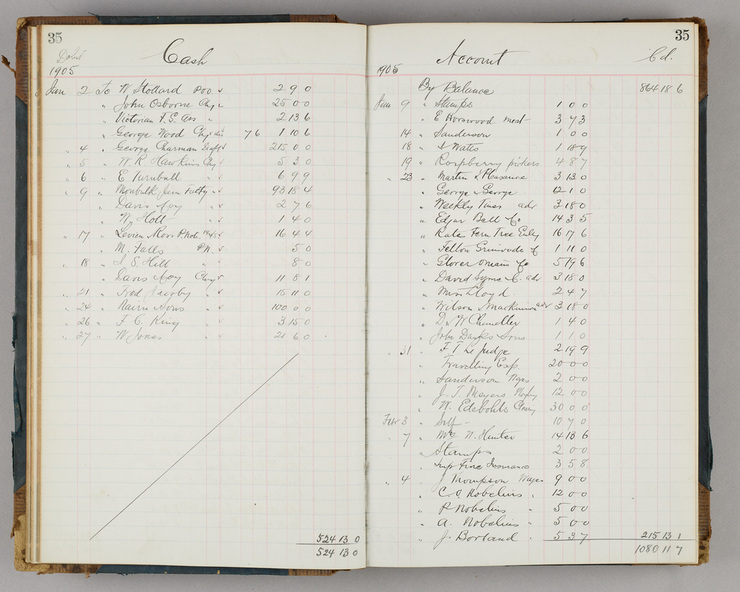 35
Cash
1905
Jan 2 To W Stollard 2 9 0
" John Osborne Chq 25 0 0
" Victorian F.G. Ass 2 13 6
" George Wood Chq 7 6 1 10 6
" 4 George Chairman 215 0 0
" 5 W R Hawkins Chq 5 3 0
" 6 E Turnbull 6 9 9
" 9 Monbulk Jam Facty 93 18 4
" Davis 2 7 6
" W Holt 1 4 0
" 17 16 4 4
" M. Falls P.N. 5 0
" 18 J S Hill 8 0
Davis Chq 11 8 1
" 21 Fred Jacoby 15 11 0
" 24 Nairn & Sons 100 0 0
" 26 F C King 3 15 0
" 27 W Jones 21 6 0
524 13 0
524 13 0
35
Account
Cd.
1905
By Balance 864 18 6
Jan 9 " Stamps 1 0 0
" E Hornwood meat 3 7 3
14 " Sanderson 1 0 0
18 " Wates
19 " Raspberry pickers 4 8 7
" 23 " Martin 3 13 0
" George & George 12 1 0
" Weekly Times adv 3 18 0
" Edgar Ball Co 14 3 5
" Kate Fern Tree Gully 16 7 6
" Felton Grimwade & Co 1 11 0
" Glover Onians & Co 57 9 6
" David Syme & Co. adv 3 18 0
" Miss Lloyd 2 4 7
" Wilson Mackinnon adv 3 18 0
" D & W Chandler 1 4 0
John Danks & Sons 1 1 0
" 31 " F T Le Judge 2 19 9
" Travelling Exp. 20 0 0
" Sanderson Wages 2 0 0
" J. T. Meyers 12 0 0
" W. Edebohls 30 0 0
Febr 3 " Self 10 7 0
" 7 " N. Hunter 14 13 6
" Stamps 2 0 0
" Imp Fire Insurance 3 5 8
" 4 " J Thompson Wages 9 0 0
" C. O Nobelius " 12 0 0
" P Nobelius " 5 0 0
" A. Nobelius " 5 0 0
" J. Borland " 5 3 7 215 13 1
1080 11 7